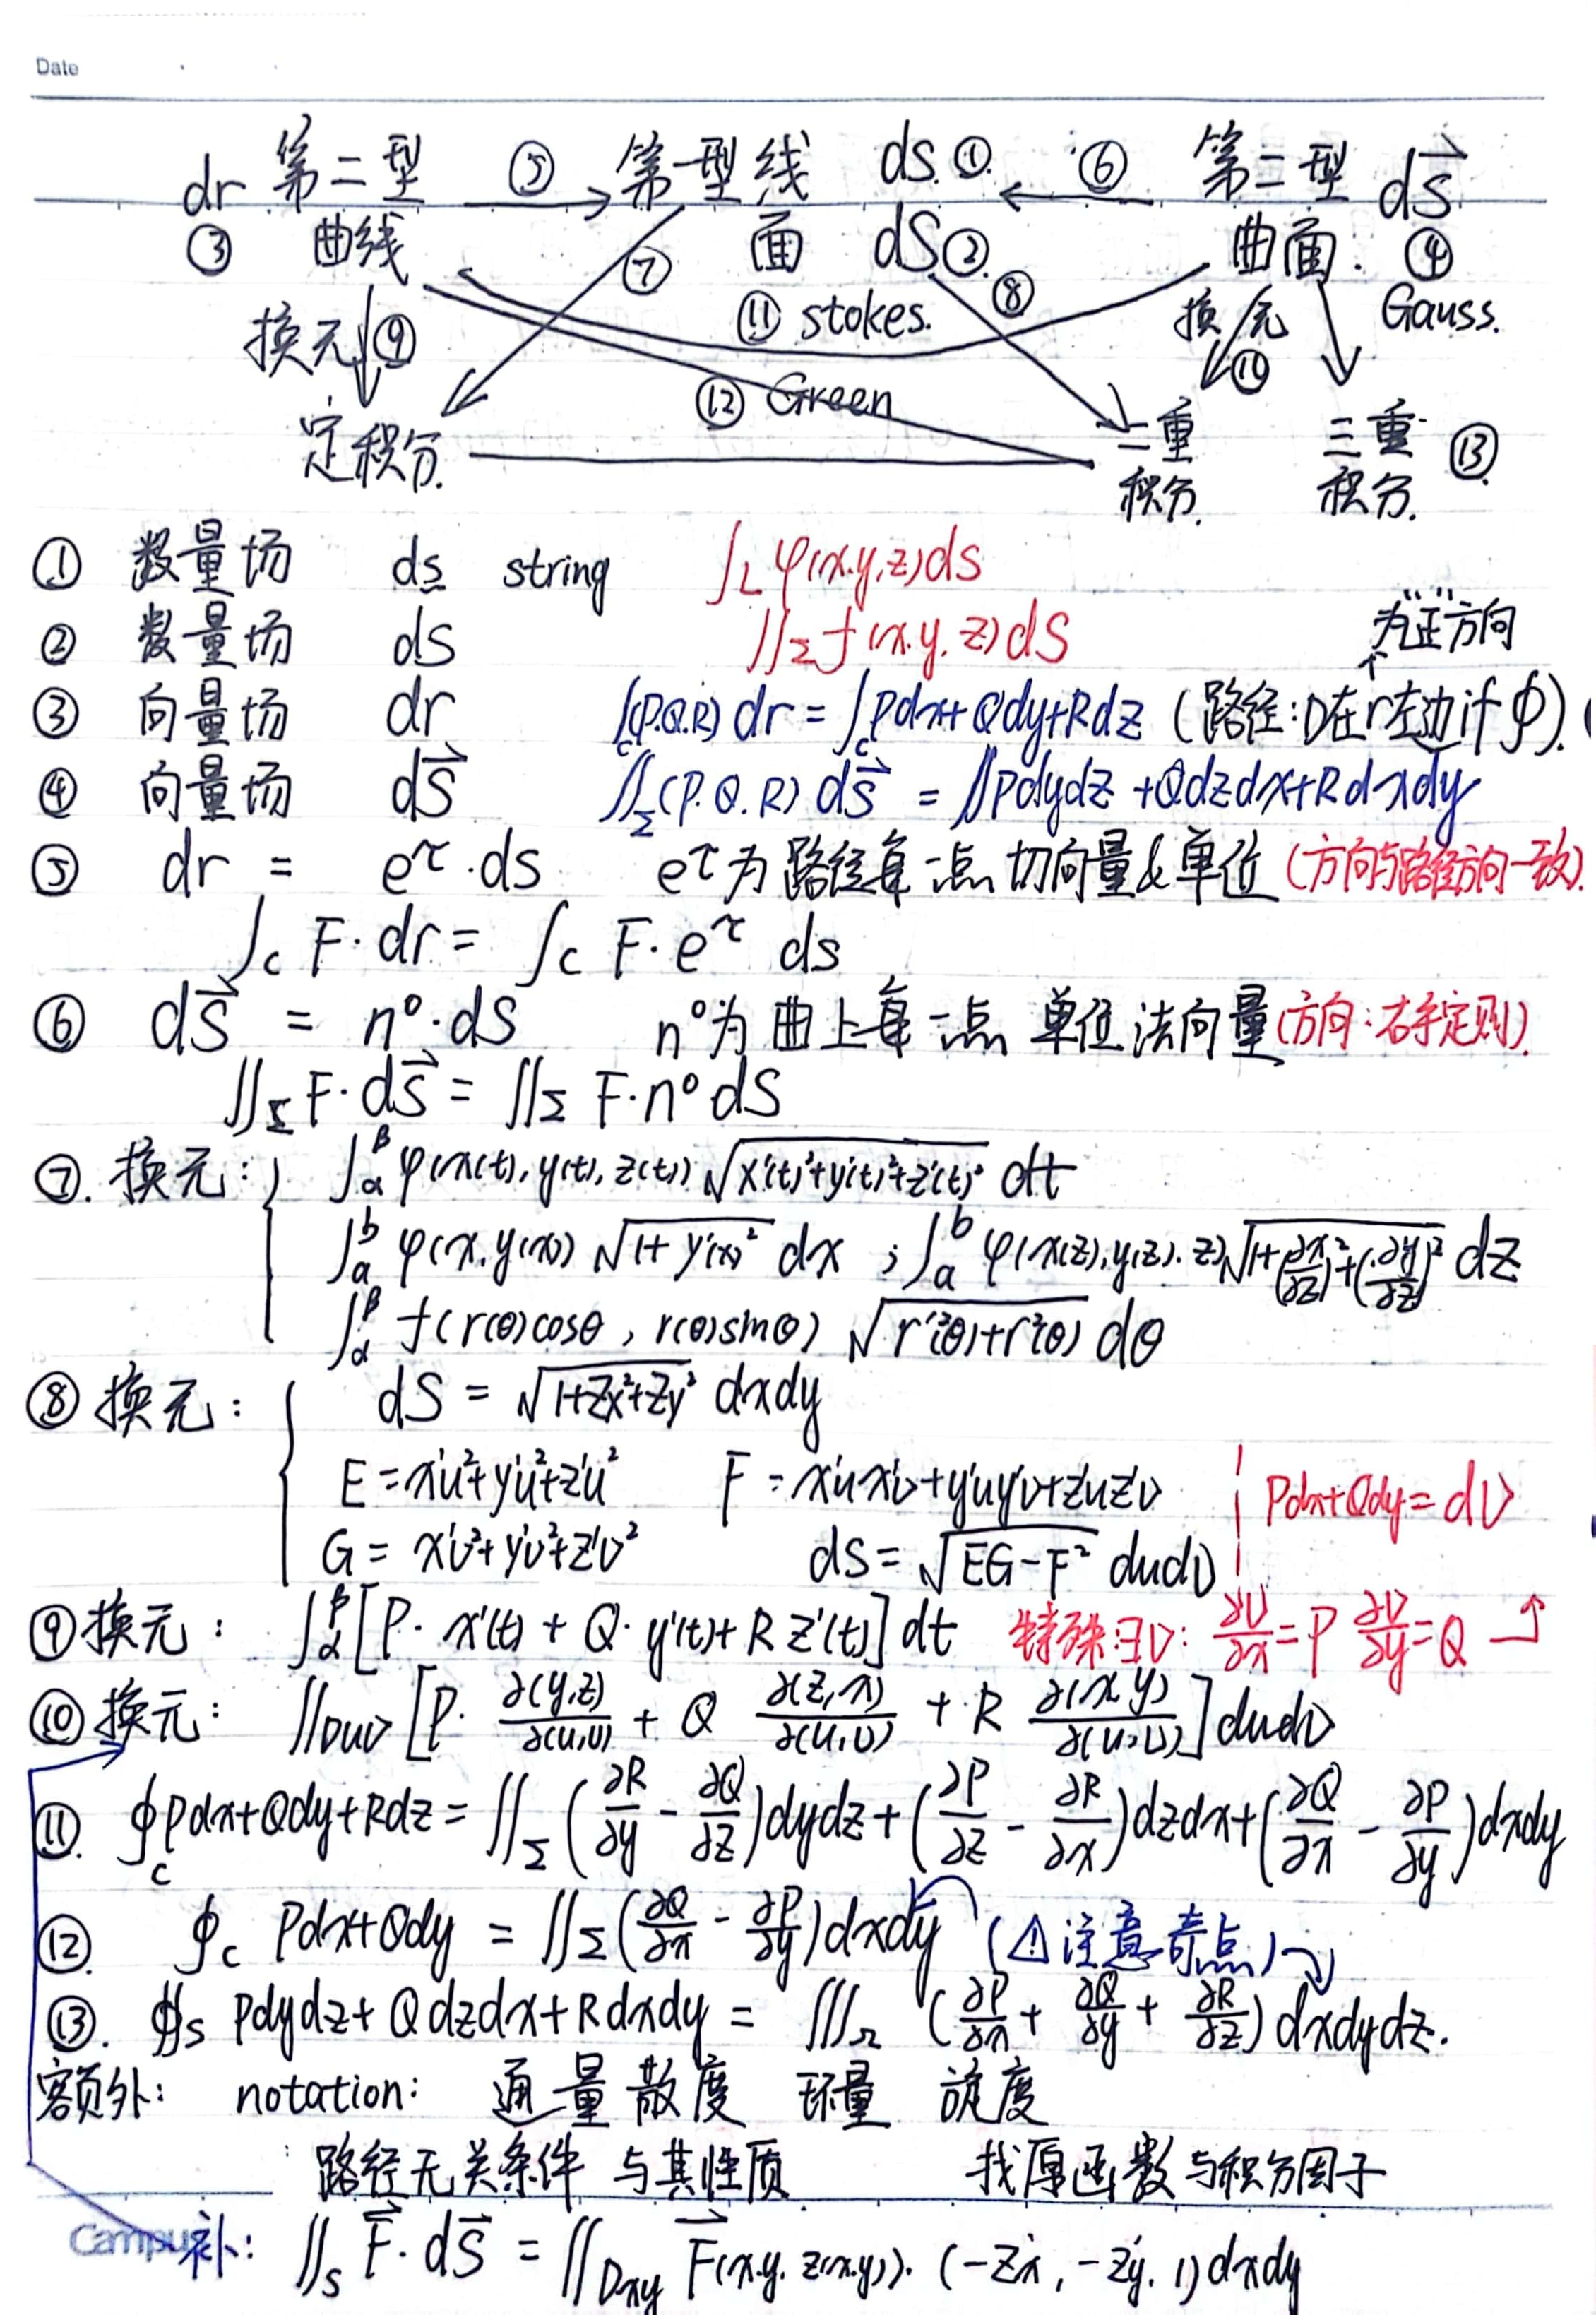 Date
dr 第二型 ⑤ 第一型线 ds ① ⑥ 第二型 dS⃗
③ 曲线 ⑦ 面 dS ② ⑧ 曲面: ④
换元 ⑨ ⑪ stokes. 换元 ⑩ Gauss.
⑫ Green
定积分. 二重积分. 三重积分. ⑬
① 数量场 ds string ∫_L φ(x.y,z)ds
② 数量场 dS ∬_Σ f(x.y.z)dS
为"正"方向
③ 向量场 dr ∫_c(P.Q.R) dr = ∫_c Pdx+Qdy+Rdz (路径:D在r左边if ∮).
④ 向量场 dS⃗ ∬_Σ(P.Q.R) dS⃗ = ∬Pdydz+Qdzdx+Rdxdy
⑤ dr = e^τ·ds e^τ为路径每一点切向量&单位 (方向与路径方向一致).
∫_c F·dr = ∫_c F·e^τ ds
⑥ dS⃗ = n°·dS n°为曲上每一点 单位法向量(方向:右手定则).
∬_Σ F·dS⃗ = ∬_Σ F·n° dS
⑦. 换元: ∫_α^β φ(x(t),y(t),z(t)) √(x'(t)²+y'(t)²+z'(t)²) dt
∫_a^b φ(x,y(x)) √(1+y'(x)²) dx ; ∫_a^b φ(x(z),y(z).z)√(1+(∂x/∂z)²+(∂y/∂z)²) dz
∫_α^β f(r(θ)cosθ, r(θ)sinθ) √(r'²(θ)+r²(θ)) dθ
⑧ 换元: dS = √(1+Zx²+Zy²) dxdy
E = x'u²+y'u²+z'u² F = x'ux'v+y'uy'v+z'uz'v Pdx+Qdy=dU
G = x'v²+y'v²+z'v² dS=√(EG-F²) dudv
⑨换元: ∫_α^β[P·x'(t)+Q·y'(t)+R z'(t)]dt 特殊:∃U: ∂U/∂x=P ∂U/∂y=Q
⑩换元: ∬_Duv [P·∂(y,z)/∂(u,v) + Q ∂(z,x)/∂(u,v) + R ∂(x,y)/∂(u,v)]dudv
⑪. ∮_c Pdx+Qdy+Rdz = ∬_Σ (∂R/∂y - ∂Q/∂z)dydz+(∂P/∂z - ∂R/∂x)dzdx+(∂Q/∂x - ∂P/∂y)dxdy
⑫. ∮_c Pdx+Qdy = ∬_Σ(∂Q/∂x - ∂P/∂y)dxdy (⚠注意奇点)
⑬. ∯_S Pdydz+Qdzdx+Rdxdy = ∭_Ω (∂P/∂x + ∂Q/∂y + ∂R/∂z) dxdydz.
额外: notation: 通量 散度 环量 旋度
路径无关条件 与其性质 找原函数与积分因子
Campus 补: ∬_S F⃗·dS⃗ = ∬_Dxy F⃗(x.y.z(x.y))·(-z'x, -z'y. 1)dxdy